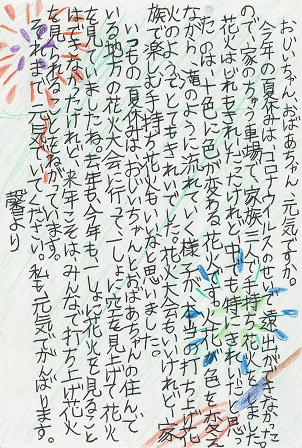 おじいちゃん、おばあちゃん、元気ですか。
今年の夏休みは、コロナウイルスのせいで遠出ができなかった
ので、家のちゅう車場で、家族三人で手持ち花火をしました。
花火はどれもきれいだったけれど、中でも特にきれいだと思っ
たのは、十色に色が変わる花火です。火花が色を変え
ながら、滝のように流れていく様子が、本当の打ち上げ花
火のようで、とてもきれいでした。花火大会もいいけれど、家
族で楽しむ手持ち花火もいいなと思いました。
いつもの夏休みは、おじいちゃんとおばあちゃんの住んで
いる地方の花火大会に行って、いっしょに空を見上げて花火
を見ていましたね。去年も今年も、いっしょに花火を見ること
はできなかったけれど、来年こそは、みんなで打ち上げ花火
を見れることをねがっています。
それまで元気でいてください。私も元気でがんばります。
馨より